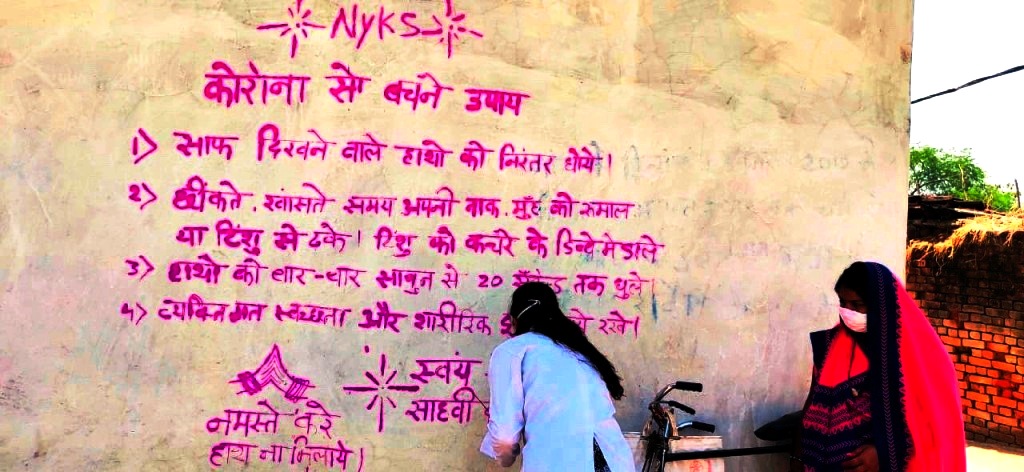 NYKS
कोरोना से बचने उपाय
1> साफ दिखने वाले हाथो को निरंतर धोये।
2> छींकते, खांसते समय अपनी नाक, मुँह को रुमाल
या टिशु से ढके। टिशु को कचरे के डिब्बे मे डाले
3> हाथो को बार-बार साबुन से 20 सैकेंड तक धुले।
4> व्यक्तिगत स्वच्छता और शारीरिक रखे।
स्वंय
साहवी
नमस्ते करे
हाथ ना मिलाये।